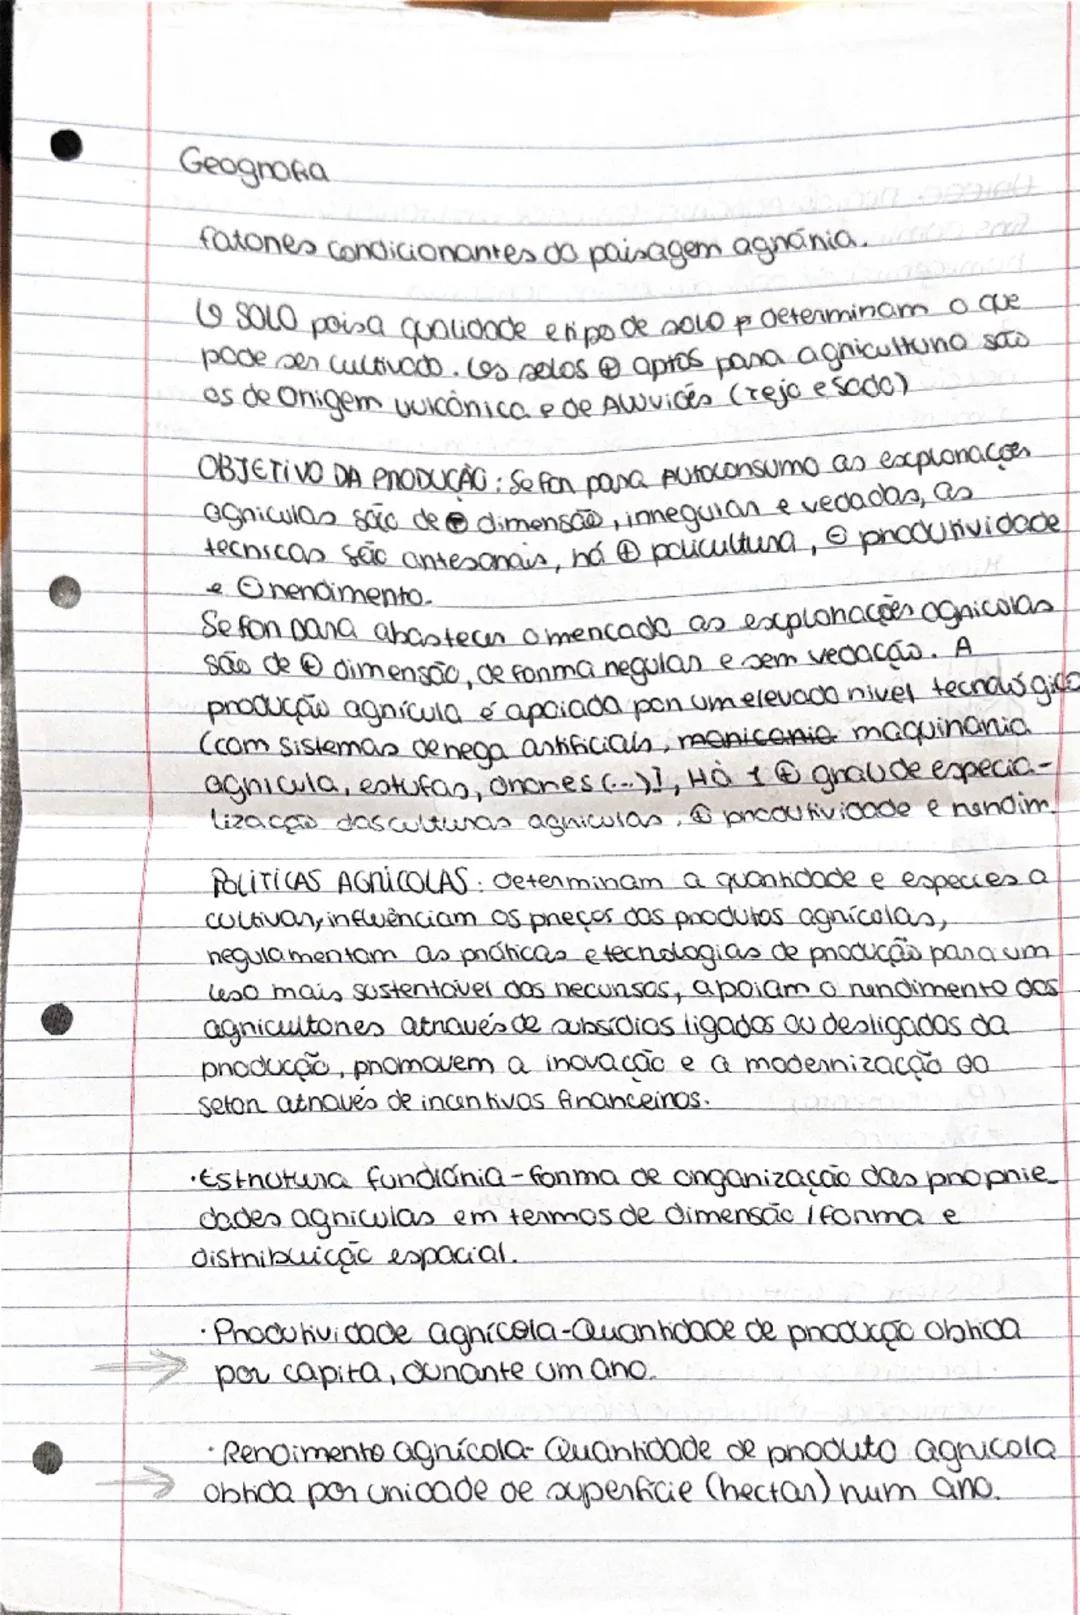 Geografia
fatores condicionantes da paisagem agrária.
↳ SOLO pois a qualidade e tipo de solo determinam o que
pode ser cultivado. Os solos ⊕ aptos para a agricultura são
os de Origem vulcânica e de Aluviões (Tejo e Sado)
OBJETIVO DA PRODUÇÃO: Se for para Autoconsumo as explorações
agrículas são de dimensão, irregular e vedadas, as
técnicas são artesanais, há ⊕ policultura, ⊖ produtividade
e ⊖ rendimento.
Se for para abastecer o mercado as explorações agrícolas
são de ⊕ dimensão, de forma regular e sem vedação. A
produção agrícula é apoiada por um elevado nível tecnológico
(com sistemas de rega artificiais, maquinaria
agrícula, estufas, drones (...)], Há 1 ⊕ grau de especia-
lização das culturas agrículas, ⊕ produtividade e rendim.
POLÍTICAS AGRÍCOLAS: determinam a quantidade e espécies a
cultivar, influênciam os preços dos produtos agrícolas,
regulamentam as práticas e tecnologias de produção para um
uso mais sustentável dos recursos, apoiam o rendimento dos
agricultores através de subsídios ligados ou desligados da
produção, promovem a inovação e a modernização do
setor através de incentivos financeiros.
·Estrutura fundiária - forma de organização das proprie
dades agrículas em termos de dimensão / forma e
distribuição espacial.
· Produtividade agrícola - Quantidade de produção obtida
→ por capita, durante um ano.
· Rendimento agrícola - Quantidade de produto agrícola
→ obtida por unidade de superfície (hectar) num ano.